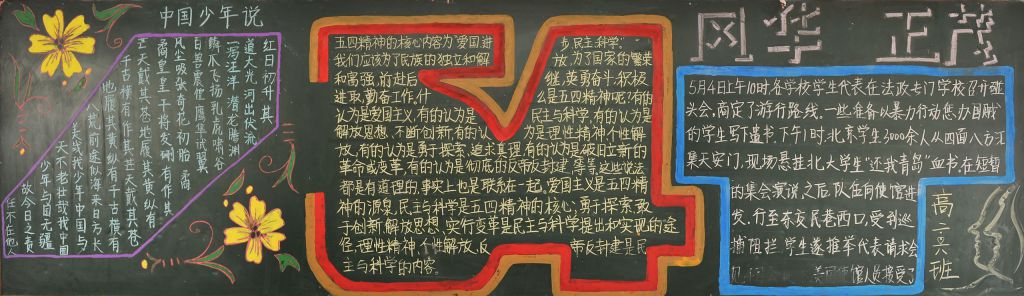 中国少年说
红日初升,其
道大光,河出伏流,
一泻汪洋,潜龙腾渊,
鳞爪飞扬,乳虎啸谷,
百兽震惶,鹰隼试翼,
风尘吸张,奇花初胎,矞
矞皇皇,干将发硎,有作其
芒,天戴其苍,地履其黄,纵有
千古,横有
八荒,前途似海,来日方长
美哉我少年中国,与
天不老,壮哉我中国
少年,与国无疆
故今日之责
任不在他人
五四精神的核心内容为"爱国进步,民主科学.
我们应该为了民族的独立和解放,为了国家的繁荣
和富强,前赴后继,英勇奋斗,积极
进取,勤奋工作,什么是五四精神呢?有的
认为是爱国主义,有的认为是民主与科学,有的认为是
解放思想、不断创新,有的认为是理性精神个性解
放,有的认为勇于探索、追求真理,有的认为是破旧立新的
革命或变革,有的认为是彻底的反帝反封建,等等,这些说法
都是有道理的,事实上也是联系在一起,爱国主义是五四精
神的源泉,民主与科学是五四精神的核心,勇于探索敢
于创新解放思想、实行变革是民主与科学提出和实现的途
径,理性精神,个性解放,反帝反封建是民
主与科学的内容.
风华 正茂
5月4日上午10时各学校学生代表在法政专门学校召开碰
头会,商定了游行路线.一些准备以暴力行动惩办国贼
的学生写下遗书.下午1时,北京学生3000余人从四面八方汇
集天安门,现场悬挂北大学生"还我青岛"血书.在短暂
的集会演说之后队伍向使馆进
发,行至东交民巷西口,受到巡
捕阻拦,学生遂推举代表请求会
馆人员接受
高一六班